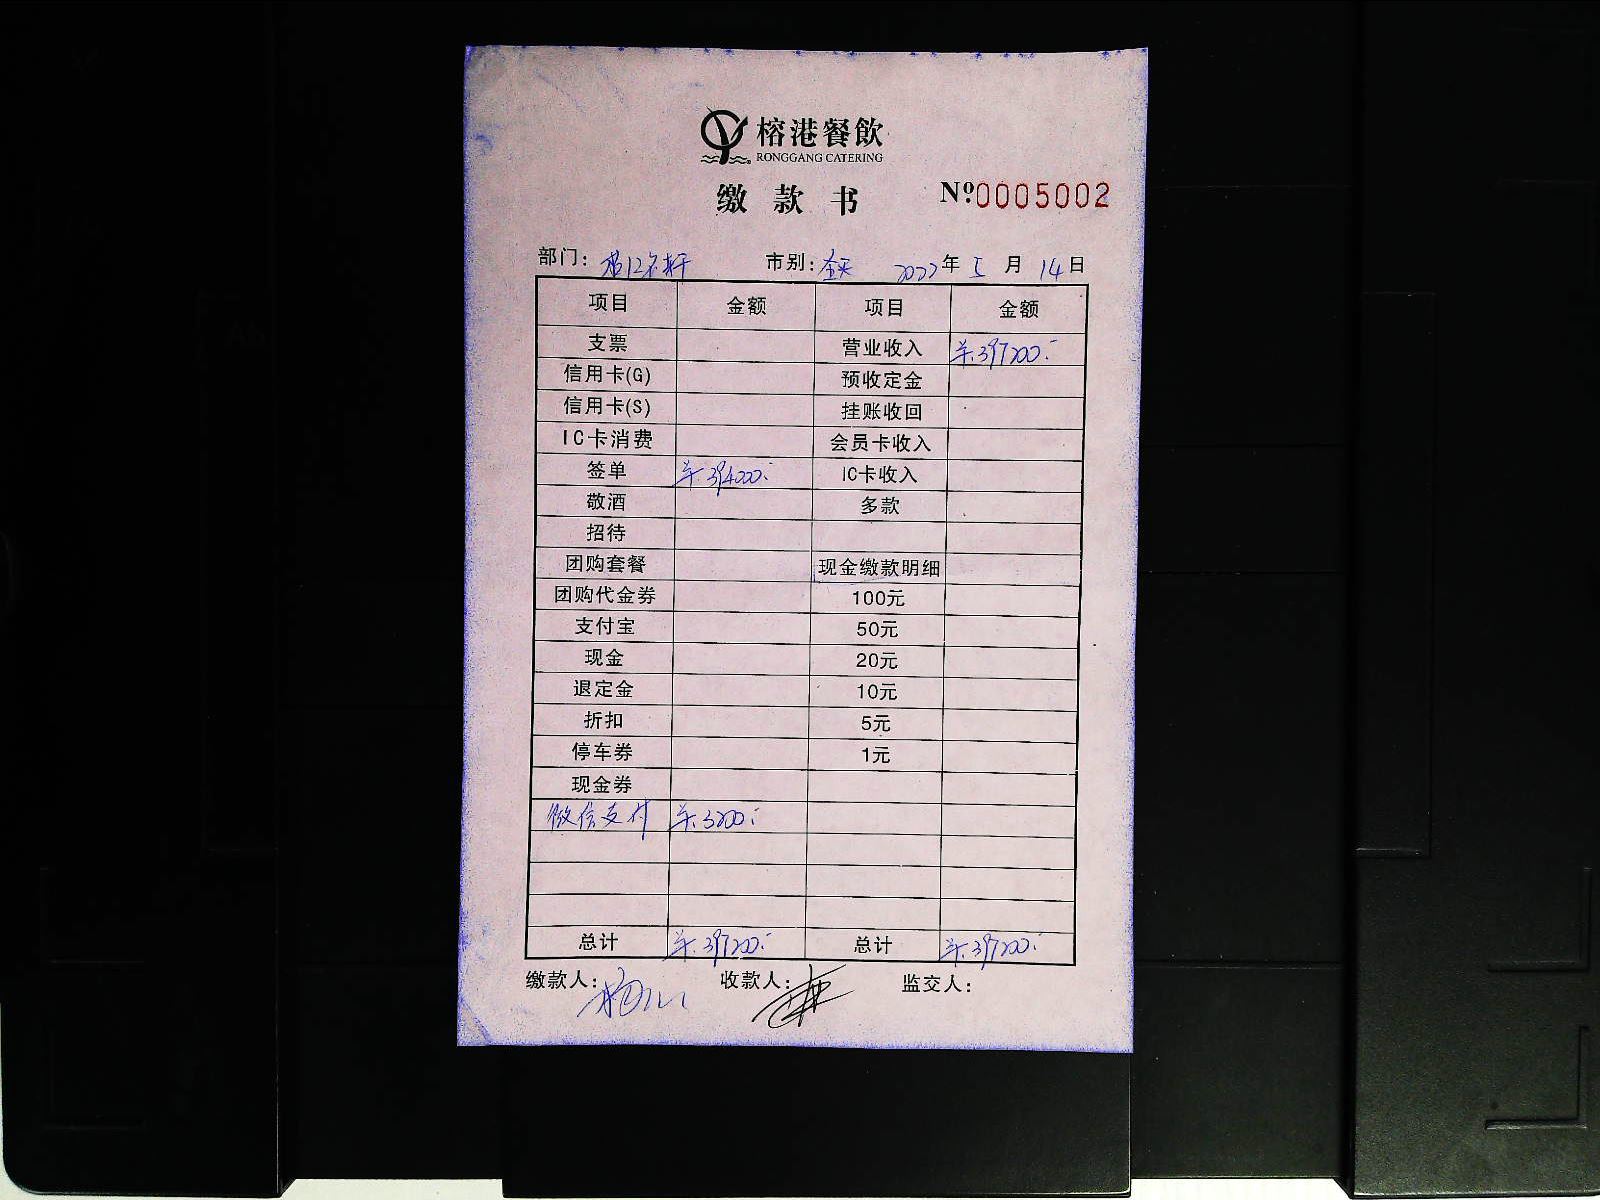 榕港餐飲
RONGGANG CATERING
缴款书 Nº:0005002
部门: 市别:全天 2022年5月14日
项目 金额 项目 金额
支票 营业收入 ¥:397200:-
信用卡(G) 预收定金
信用卡(S) 挂账收回
IC卡消费 会员卡收入
签单 ¥:394000:- IC卡收入
敬酒 多款
招待
团购套餐 现金缴款明细
团购代金券 100元
支付宝 50元
现金 20元
退定金 10元
折扣 5元
停车券 1元
现金券
微信支付 ¥:3200:-
总计 ¥:397200:- 总计 ¥:397200:-
缴款人: 收款人: 监交人: